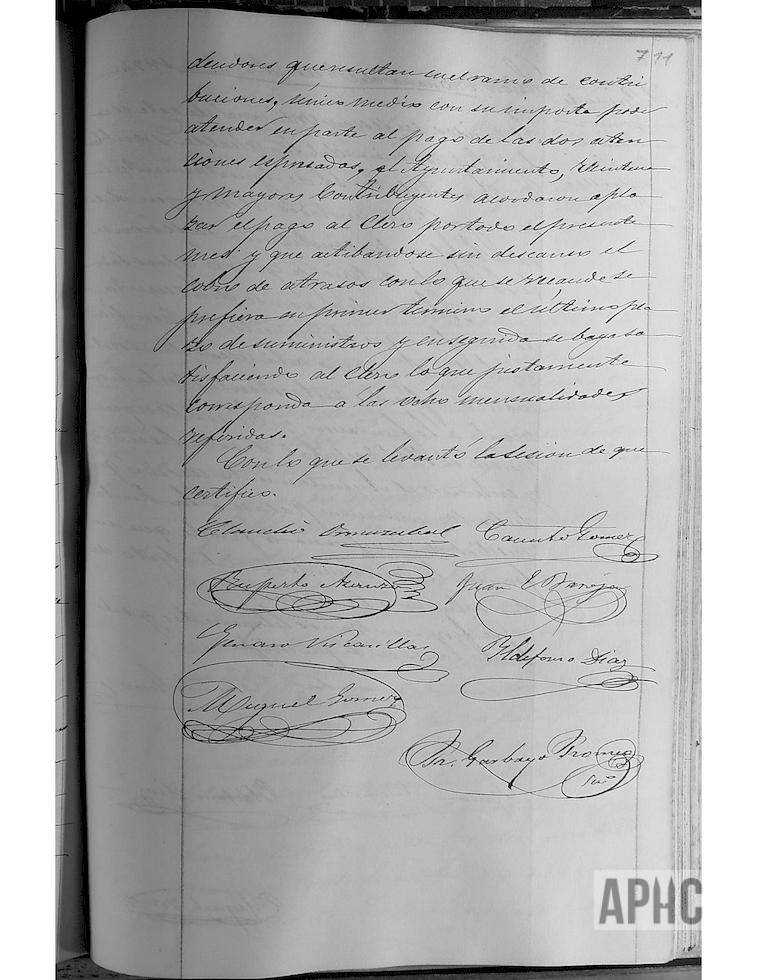 711
deudores que resultan en el ramo de contri
buciones, único medio con su importe poder
atender en parte al pago de las dos aten
ciones espresadas, el Ayuntamiento, Veintena
y Mayores Contribuyentes acordaron apla
zar el pago al Clero por todo el presente
mes y que actibandose sin descanso el
cobro de atrasos con lo que se recaude se
prefiera en primer termino el último pla
zo de suministros y en seguida se baya sa
tisfaciendo al Clero lo que justamente
corresponda a las ocho mensualidades
referidas.
Con lo que se levantó la sesion de que
certifico.
Claudio Ormazabal Canuto Gomez
Ruperto Juan E Baroja
Genaro Ildefonso Diaz
Miguel Gomez
Fr. Garbayo
Srio
APHC